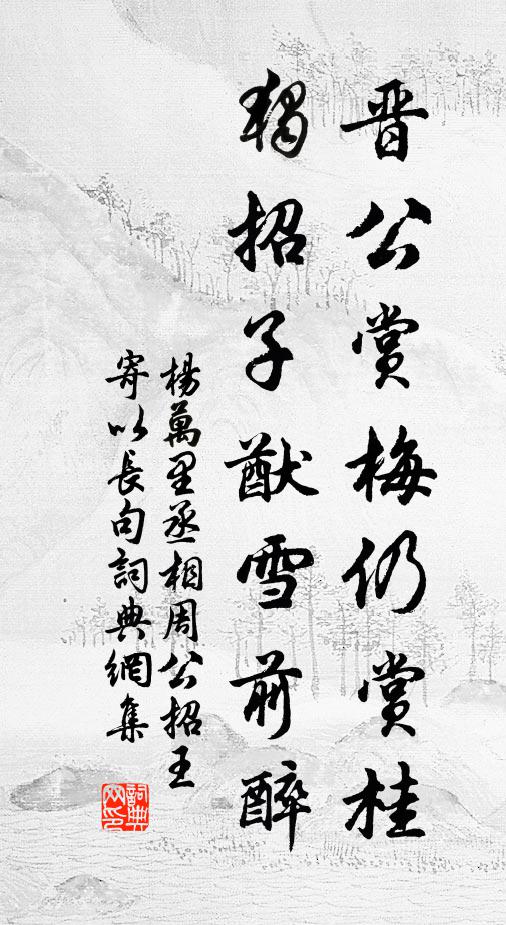 晋公赏梅仍赏桂
独招子猷雪前醉
楊萬里丞相周公招王
寄以長句詞典網集
詞典网印